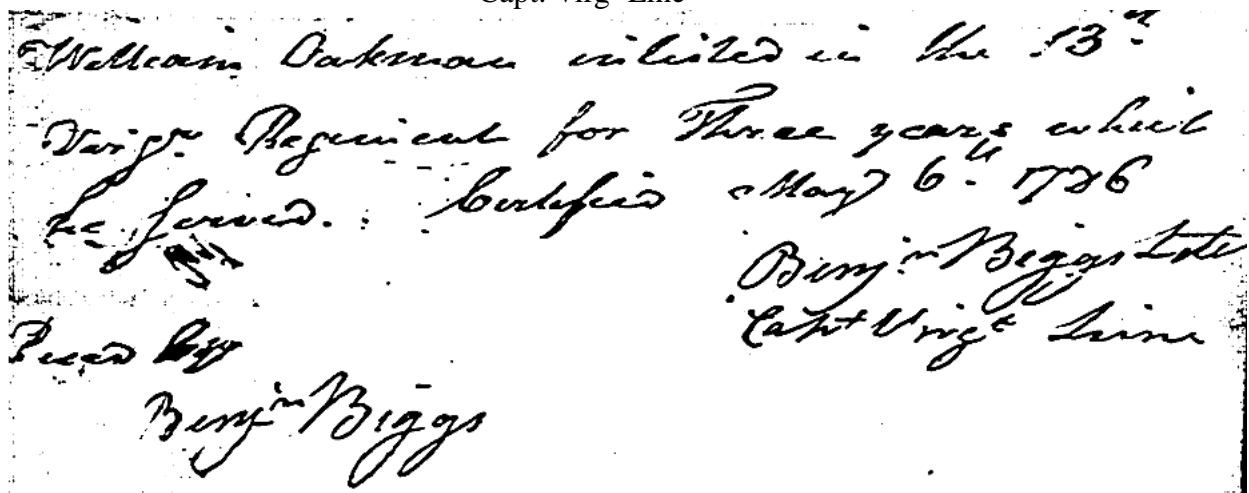 Capt. Virga Line
William Oakman inlisted in the 13th
Virga Regiment for Three years which
he served. Certified May 6th 1786
Benjn Biggs Late
Capt Virga Line
Recd
Benjn Biggs